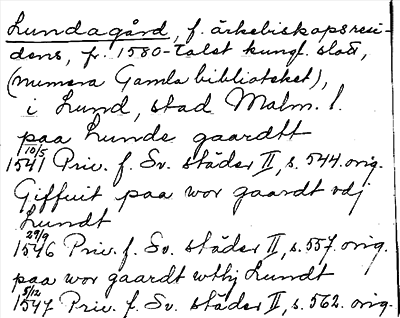 Lundagård, f. ärkebiskopsresi-
dens, fr. 1580-talet kungl. slott,
(numera Gamla biblioteket),
i Lund, stad Malm. l.
paa Lunde gaardtt
10/5 1541 Priv. f. Sv. städer II, s. 544. orig.
Giffuit paa wor gaardt vdj
Lundt
29/9 1546 Priv. f. Sv. städer II, s. 557. orig.
paa wor gaardt wthj Lundt
5/12 1547 Priv. f. Sv. städer II, s. 562. orig.